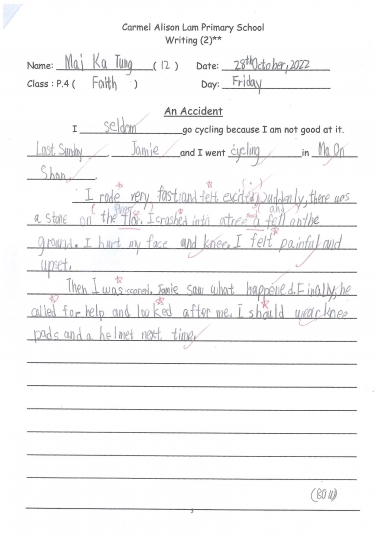 Carmel Alison Lam Primary School
Writing (2)**
Name: Mai Ka Tung (12) Date: 28th October, 2022
Class : P.4 ( Faith ) Day: Friday
An Accident
I seldom go cycling because I am not good at it.
Last Sunday, Jamie and I went cycling in Ma On
Shan.
I rode very fast and felt excited. Suddenly, there was
floor and
a stone on the floor. I crashed into a tree fell on the
ground. I hurt my face and knee. I felt painful and
upset.
Then I was scared. Jamie saw what happened. Finally, he
called for help and looked after me. I should wear knee
pads and a helmet next time.
3